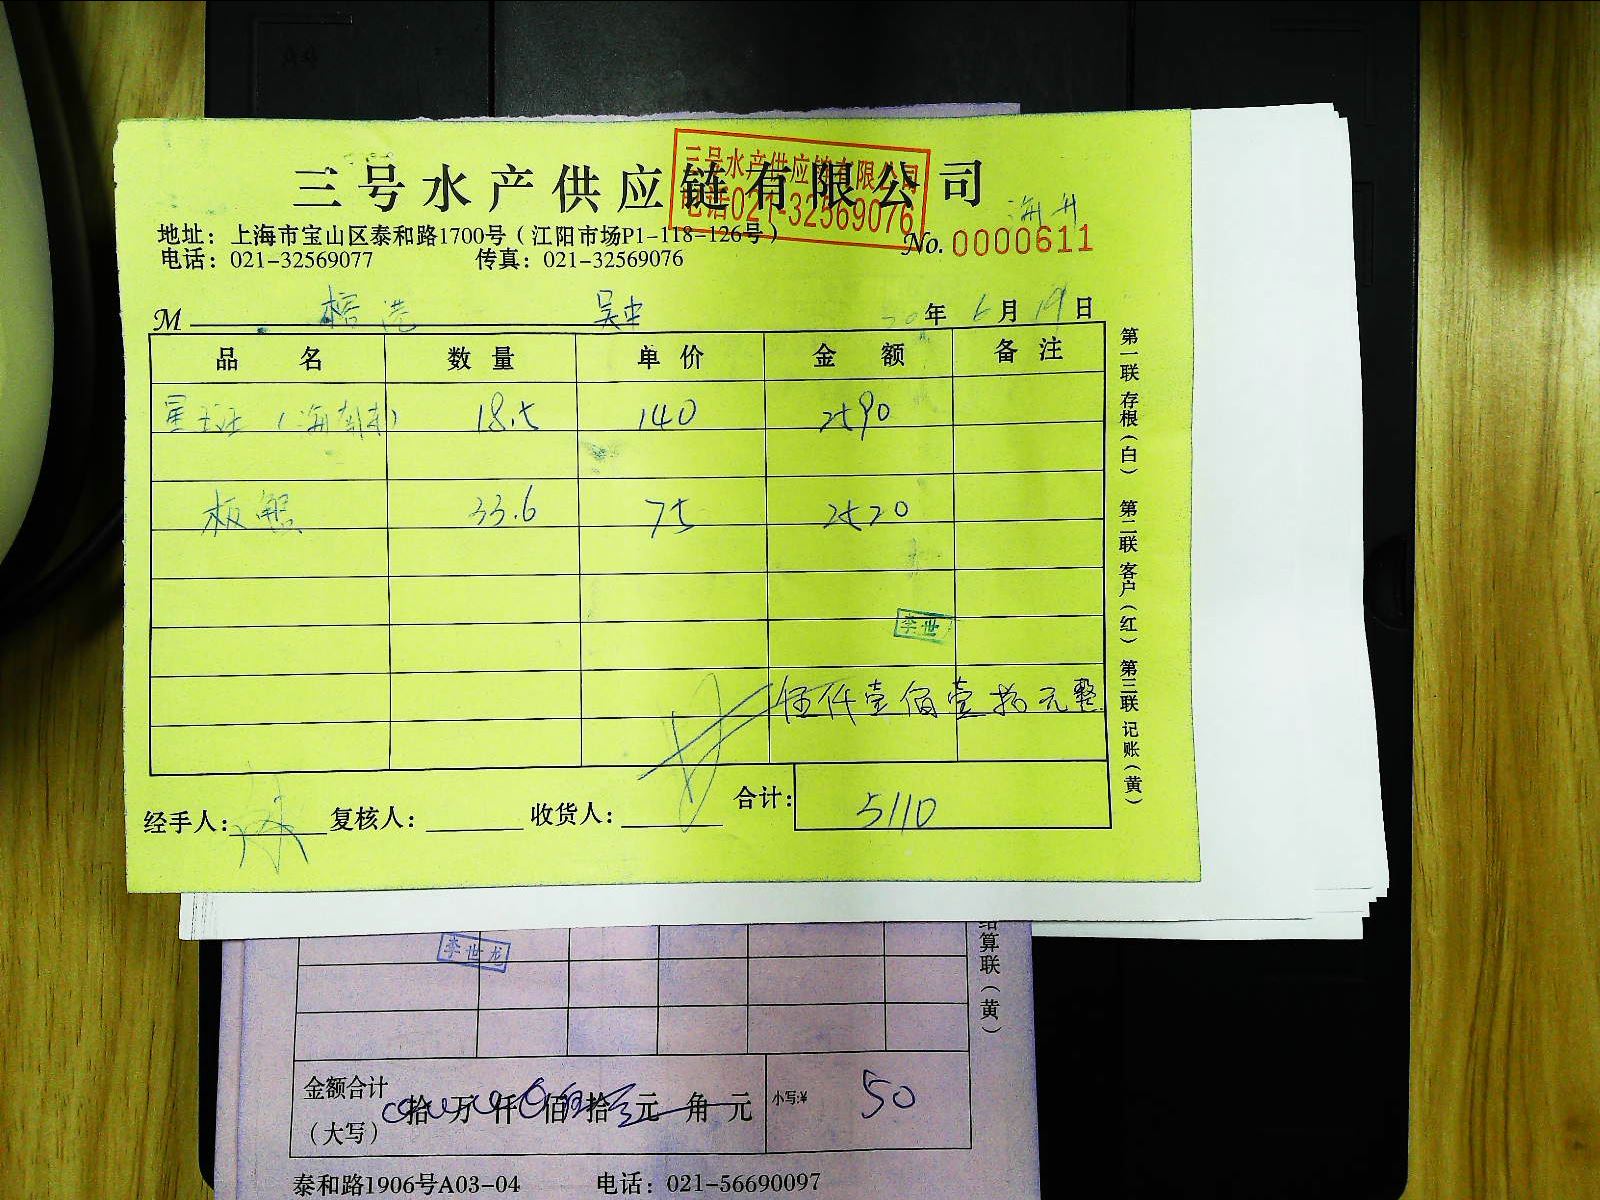 三号水产供应链有限公司
三号水产供应链有限公司
电话021-32569076
地址：上海市宝山区泰和路1700号（江阳市场P1-118-126号）
电话：021-32569077 传真：021-32569076
No. 0000611
M 榕港 吴中 年 6月19日
品名 数量 单价 金额 备注
星斑（海南） 18.5 140 2590
板 33.6 75 2520
李世
伍仟壹佰壹拾元整
经手人： 复核人： 收货人： 合计： 5110
第一联 存根（白） 第二联 客户（红） 第三联 记账（黄）
李世龙
结算联（黄）
金额合计（大写） 拾 万 仟 佰 拾 元 角 元 小写:¥ 50
泰和路1906号A03-04 电话：021-56690097